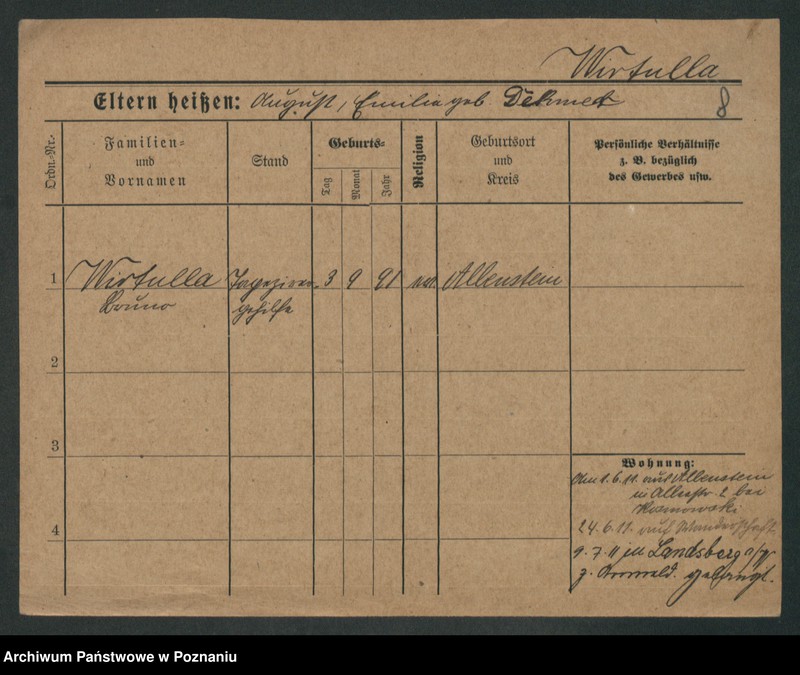 Wirtulla
Eltern heißen: August, Emilie geb. Dehmet
8
Ordn.-Nr.
Familien-
und
Vornamen
Stand
Geburts-
Tag
Monat
Jahr
Religion
Geburtsort
und
Kreis
Persönliche Verhältnisse
z. B. bezüglich
des Gewerbes usw.
1 Wirtulla 3 9 91 ev. Allenstein
Bruno gehilfe
2
3
4
Wohnung:
Am 1.6.11. aus Allenstein
in 2 bei
24.6.11. auf Wanderschaft
9.7.11 in Landsberg a/W
z.
Archiwum Państwowe w Poznaniu